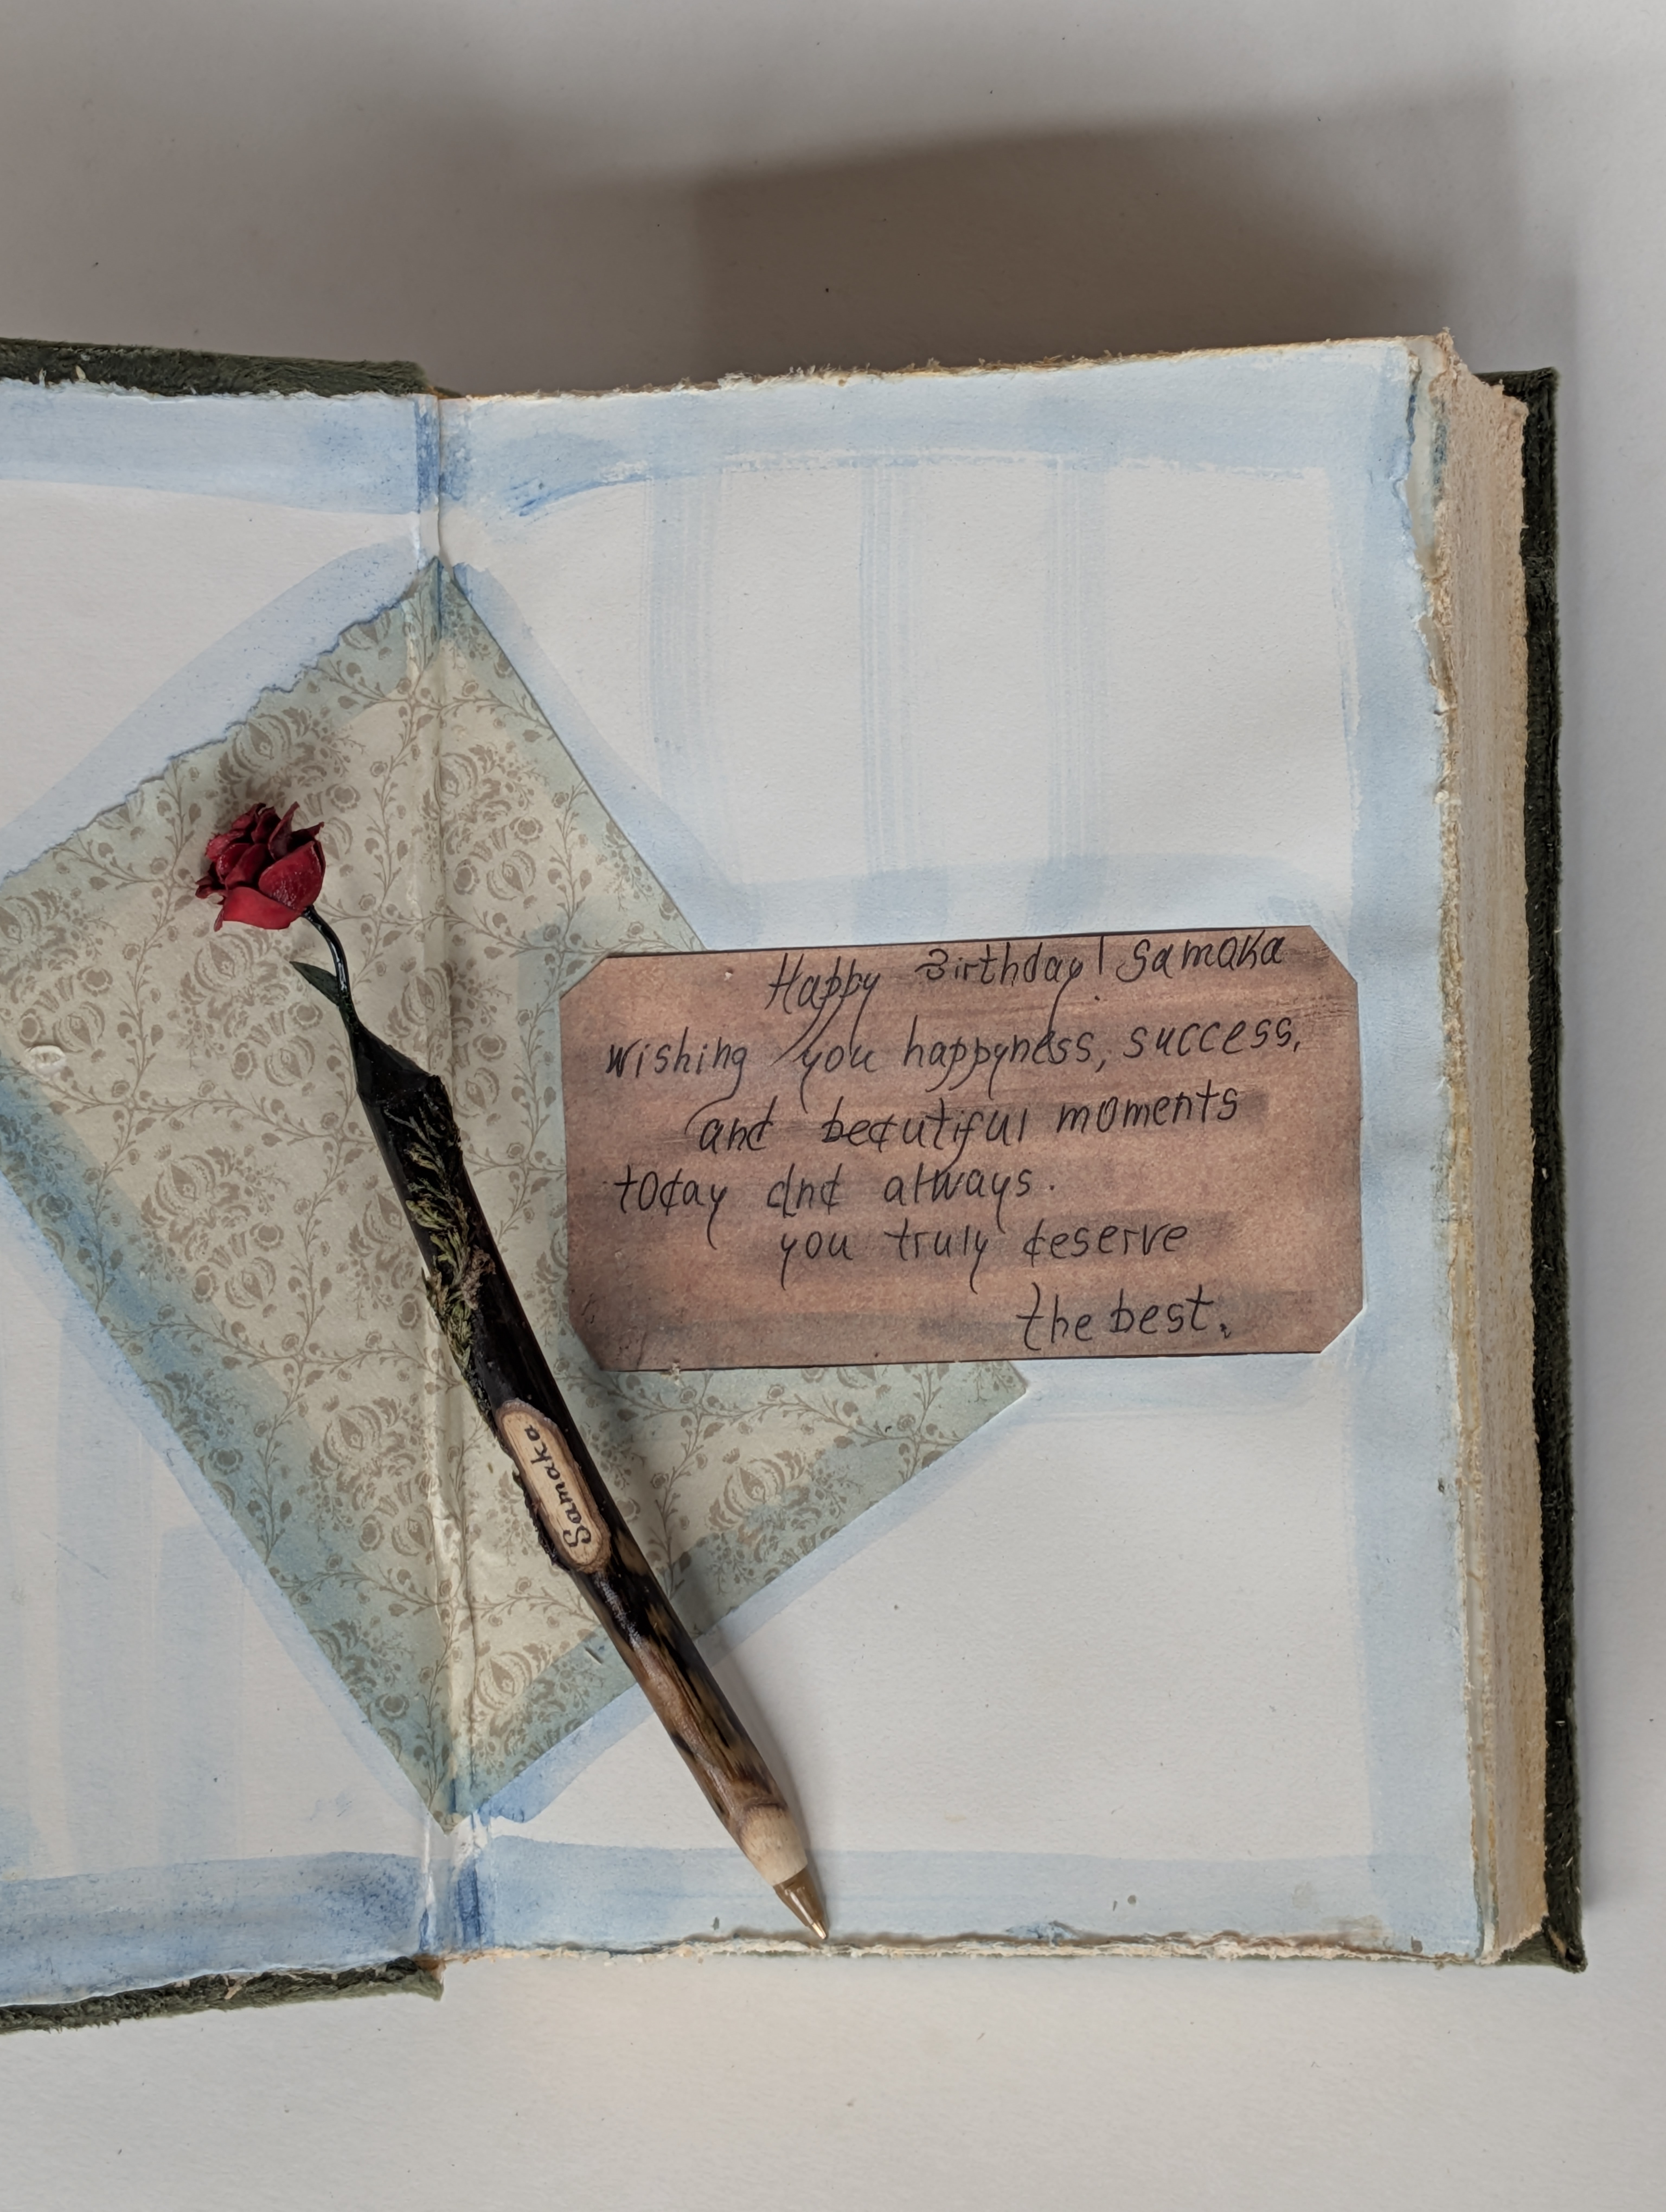 Happy Birthday! Samaka
wishing you happyness, success,
and beautiful moments
today and always.
you truly deserve
the best.
Samaka